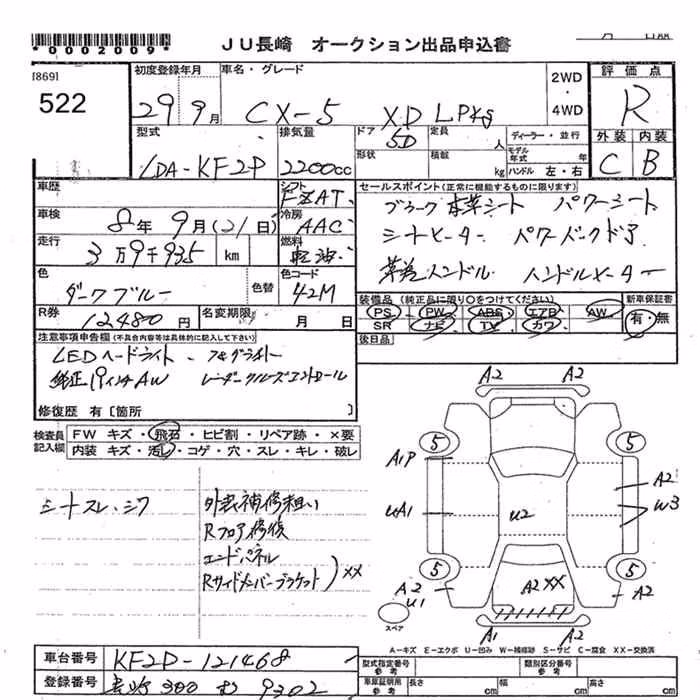 *0002009*
JU長崎 オークション出品申込書
[869]
522
初度登録年月
29 9月
車名・グレード
CX-5 XD LPkg
2WD
・
4WD
評価点
R
外装 内装
C B
型式
LDA-KF2P
排気量
2200cc
ドア
5D
形状
定員
人
積載
kg
ディーラー・並行
モデル年式 年
ハンドル 左・右
車歴
シフト
FAT
車検
8年 9月(21日)
冷房
AAC
走行
3万9千935 km
燃料
軽油
色
ダークブルー
色替
色コード
42M
R券
12480円
名変期限
月 日
セールスポイント(正常に機能するものに限ります)
ブラック本革シート パワーシート
シートヒーター パワーバックドア
革巻ハンドル ハンドルヒーター
装備品(純正品に限り○をつけてください)
PS・PW・ABS・エアB・AW
SR ナビ・TV・カワ
新車保証書
有・無
後日品
注意事項申告欄(不具合内容等は具体的に記入して下さい)
LEDヘッドライト、フォグライト
純正19インチAW レーダークルーズコントロール
修復歴 有[箇所 ]
検査員
記入欄
FW キズ・飛石・ヒビ割・リペア跡・×要
内装 キズ・汚レ・コゲ・穴・スレ・キレ・破レ
シートスレ、シワ
外装補修粗い
Rフロア修復
エンドパネル
Rサイドメンバーブラケット )××
A2 A2
5 5
A1P
A2
UA1
U2
W3
5 5
A2
U1
A2××
A2
スペア
A1 A2
A-キズ E-エクボ U-凹み W-補修跡 S-サビ C-腐食 XX-交換済
車台番号
KF2P-121468
登録番号
長崎 300 む 9302
型式指定番号
参考
類別区分番号
参考
車庫証明用
参考
長さ cm
幅 cm
高さ cm